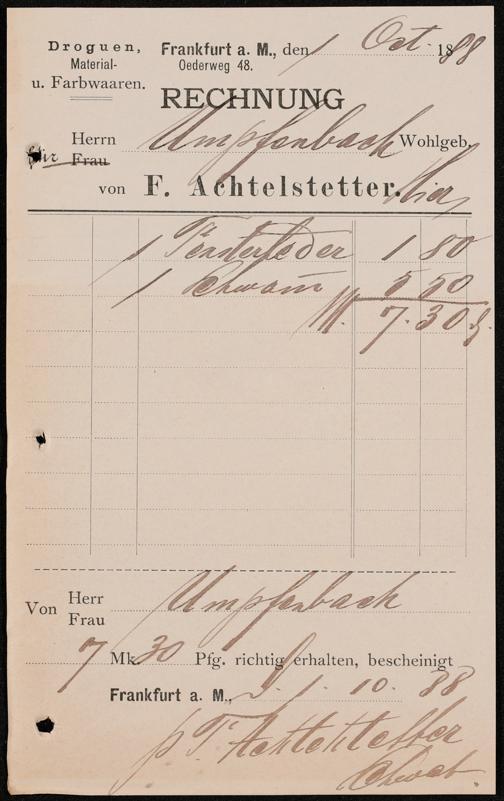 Droguen,
Material-
u. Farbwaaren.
Frankfurt a. M., den 1 Oct. 1888
Oederweg 48.
RECHNUNG
für Herrn Umpfenbach Wohlgeb.
Frau
Hier
von F. Achtelstetter.
1 Fensterleder 1 80
1 Schwam 5 50
M. 7.30 ₰
Von Herr Umpfenbach
Frau
7 Mk 30 Pfg. richtig erhalten, bescheinigt
Frankfurt a. M., d. 1. 10. 88
p F. Achtelstetter